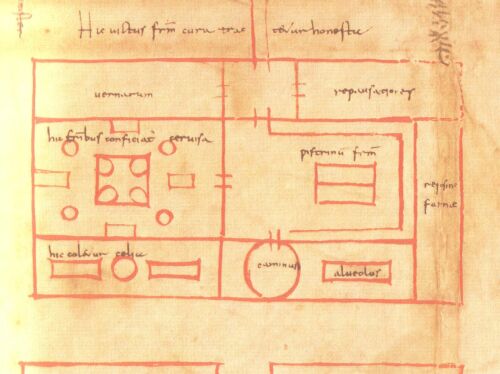 Hic uictus frm̄ cura trac tetur honestu
uernarum repausationes
hic fribus conficiat ceruisa
pistrinū frm̄
farinae
hic coletur celia
caminus
alueolos